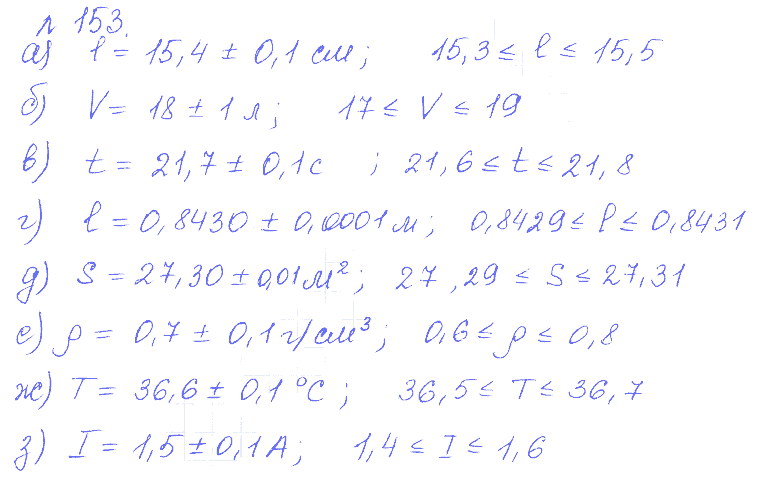 № 153.
а) l = 15,4 ± 0,1 см; 15,3 ≤ l ≤ 15,5
б) V = 18 ± 1 л; 17 ≤ V ≤ 19
в) t = 21,7 ± 0,1 с ; 21,6 ≤ t ≤ 21,8
г) l = 0,8430 ± 0,0001 м; 0,8429 ≤ l ≤ 0,8431
д) S = 27,30 ± 0,01 м²; 27,29 ≤ S ≤ 27,31
е) ρ = 0,7 ± 0,1 г/см³; 0,6 ≤ ρ ≤ 0,8
ж) T = 36,6 ± 0,1 °C; 36,5 ≤ T ≤ 36,7
з) I = 1,5 ± 0,1 A; 1,4 ≤ I ≤ 1,6